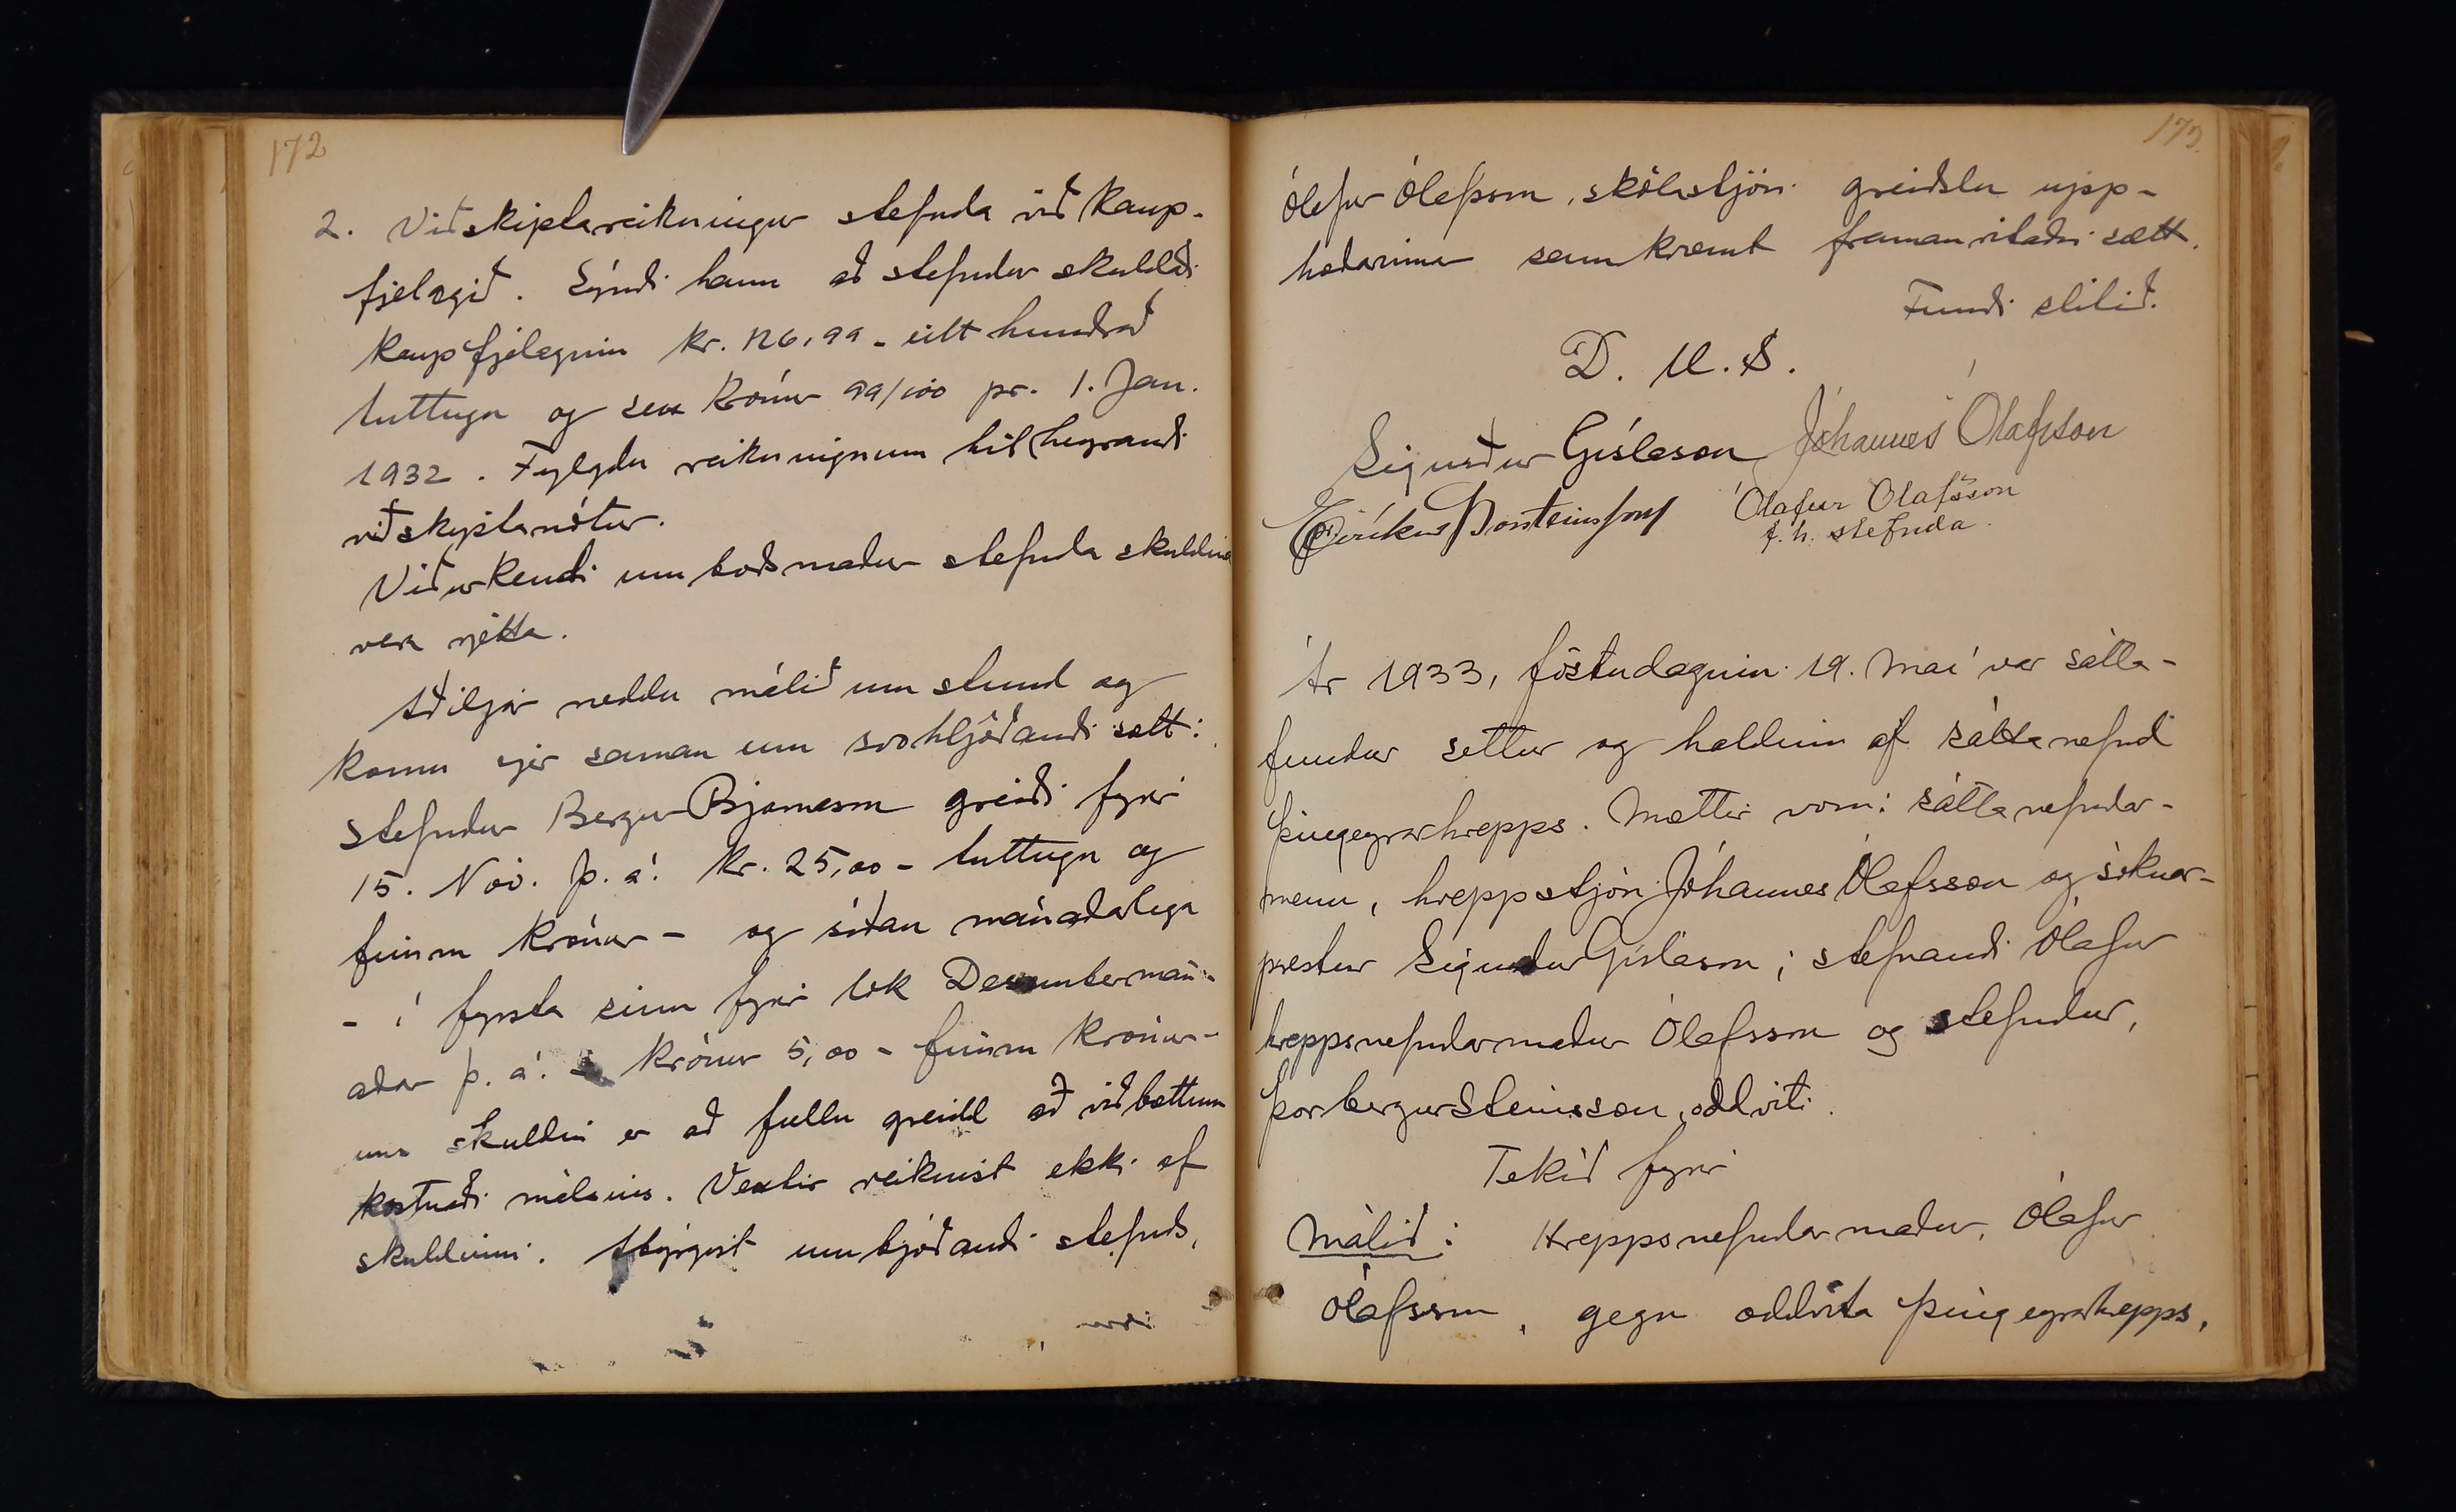 172
2. Viðskiptareikningur stefnda við Kaup-
fjelagið. Sýndi hann að stefndur skuldaði
Kaupfjelaginu kr. 126,99 - eitt hundrað
tuttugu og sex krónur 99/100 pr. 1. Jan.
1932. Fylgdu reikningnum tilheyrandi
viðskiptanótur.
Viðurkendi umboðsmaður stefnda skuldina
vera rjetta.
Aðiljar ræddu málið um stund og
komu sjer saman um svohljóðandi sætt:
Stefndur Bergur Bjarnason greiði fyrir
15. Nóv. þ. á. kr. 25,00 - tuttugu og
fimm krónur - og síðan mánaðarlega
- í fyrsta sinn fyrir lok Desembermán-
aðar þ. á. krónur 5,00 - fimm krónur -
uns skuldin er að fullu greidd að viðbættum
kostnaði málsins. Vextir reiknist ekki af
skuldinni. Abyrgist umbjóðandi stefnds,
173.
Ólafur Ólafsson, skólastjóri greiðslu upp-
hæðarinnar samkvæmt framanritaðri sætt.
Fundi slitið.
D. U. S.
Sigurður Gíslason Jóhannes Ólafsson
Eiríkur Þorsteinsson Ólafur Ólafsson
f. h. stefnda.
Ár 1933, föstudaginn 19. maí var sátta-
fundur settur og haldinn af sáttanefnd
Þingeyrarhrepps. Mættir voru: sáttanefndar-
menn, hreppstjóri Jóhannes Ólafsson og sóknar-
prestur Sigurður Gíslason; stefnandi Ólafur
hreppsnefndarmaður Ólafsson og stefndur,
Þorbergur Steinsson, oddviti.
Tekið fyrir
Málið: Hreppsnefndarmaður, Ólafur
Ólafsson, gegn oddvita Þingeyrarhrepps,